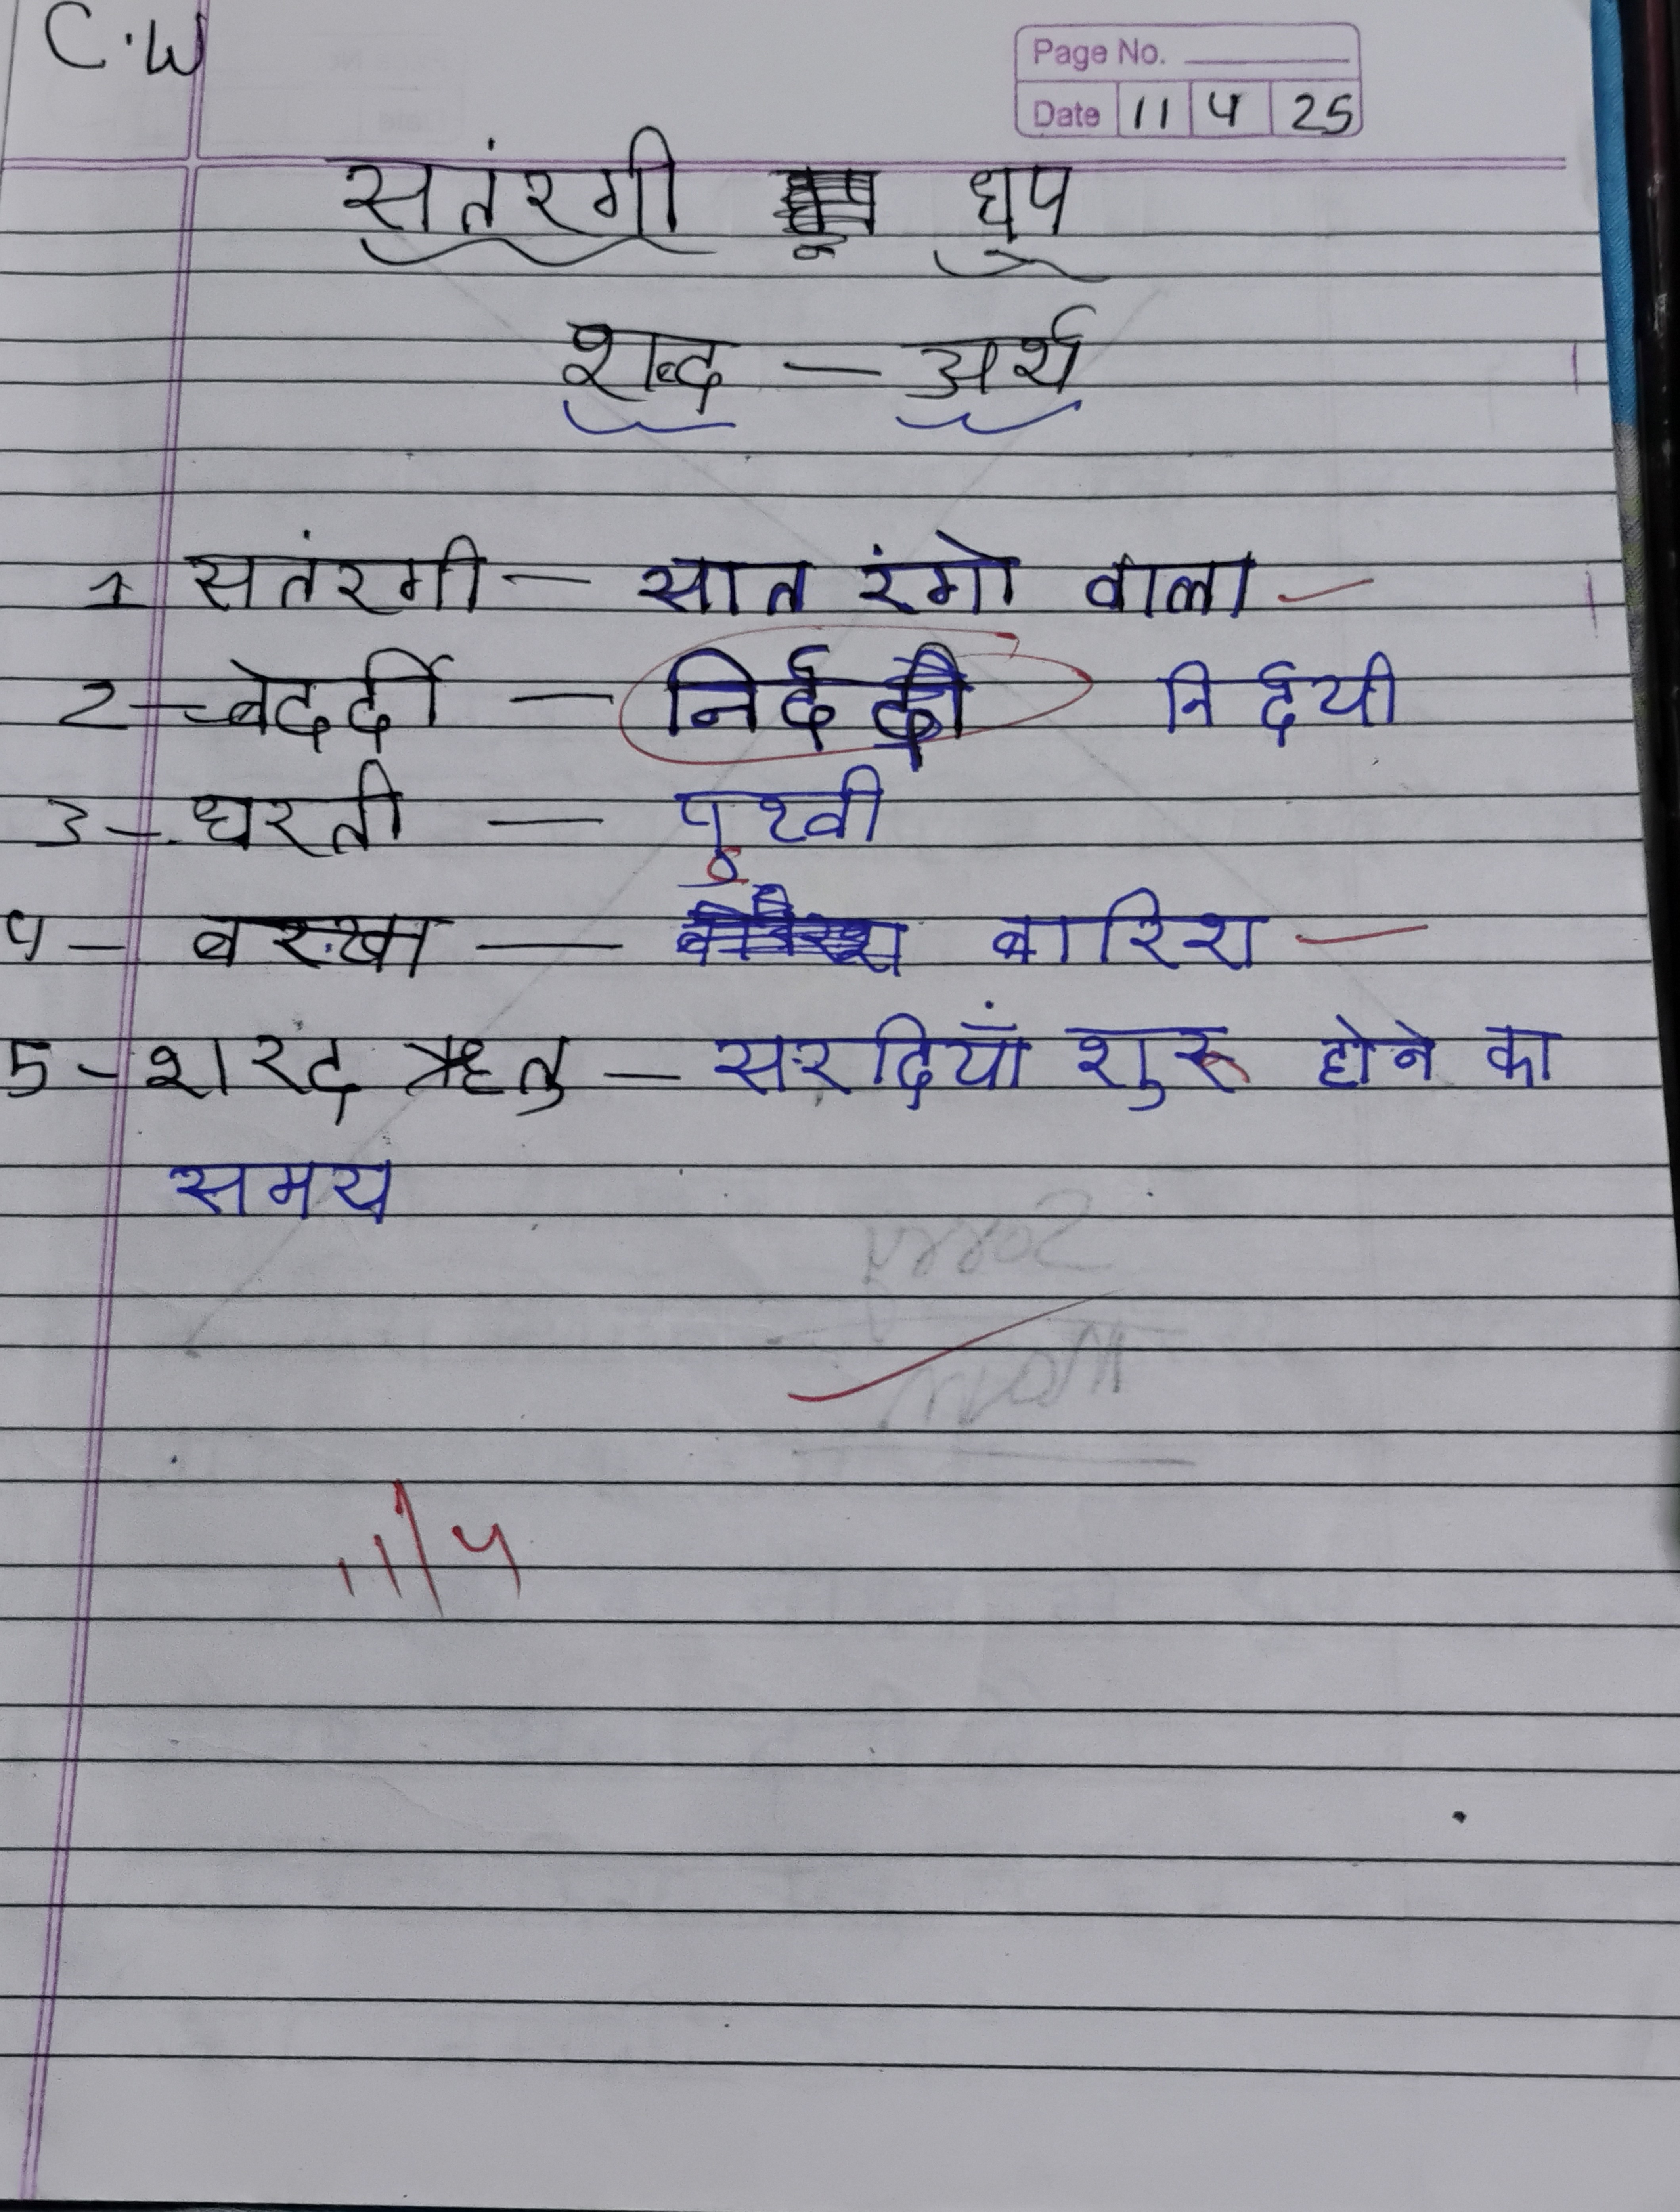 C.W
Page No.
Date 11 4 25
सतंरगी धुप
शब्द — अर्थ
1 सतंरगी — सात रंगो वाला
2 - बेदर्दी — निर्दयी
3 - धरती — पृथ्वी
4 - बरखा — बारिश
5 - शरद ऋतु — सरदियाँ शुरू होने का
समय
11/4